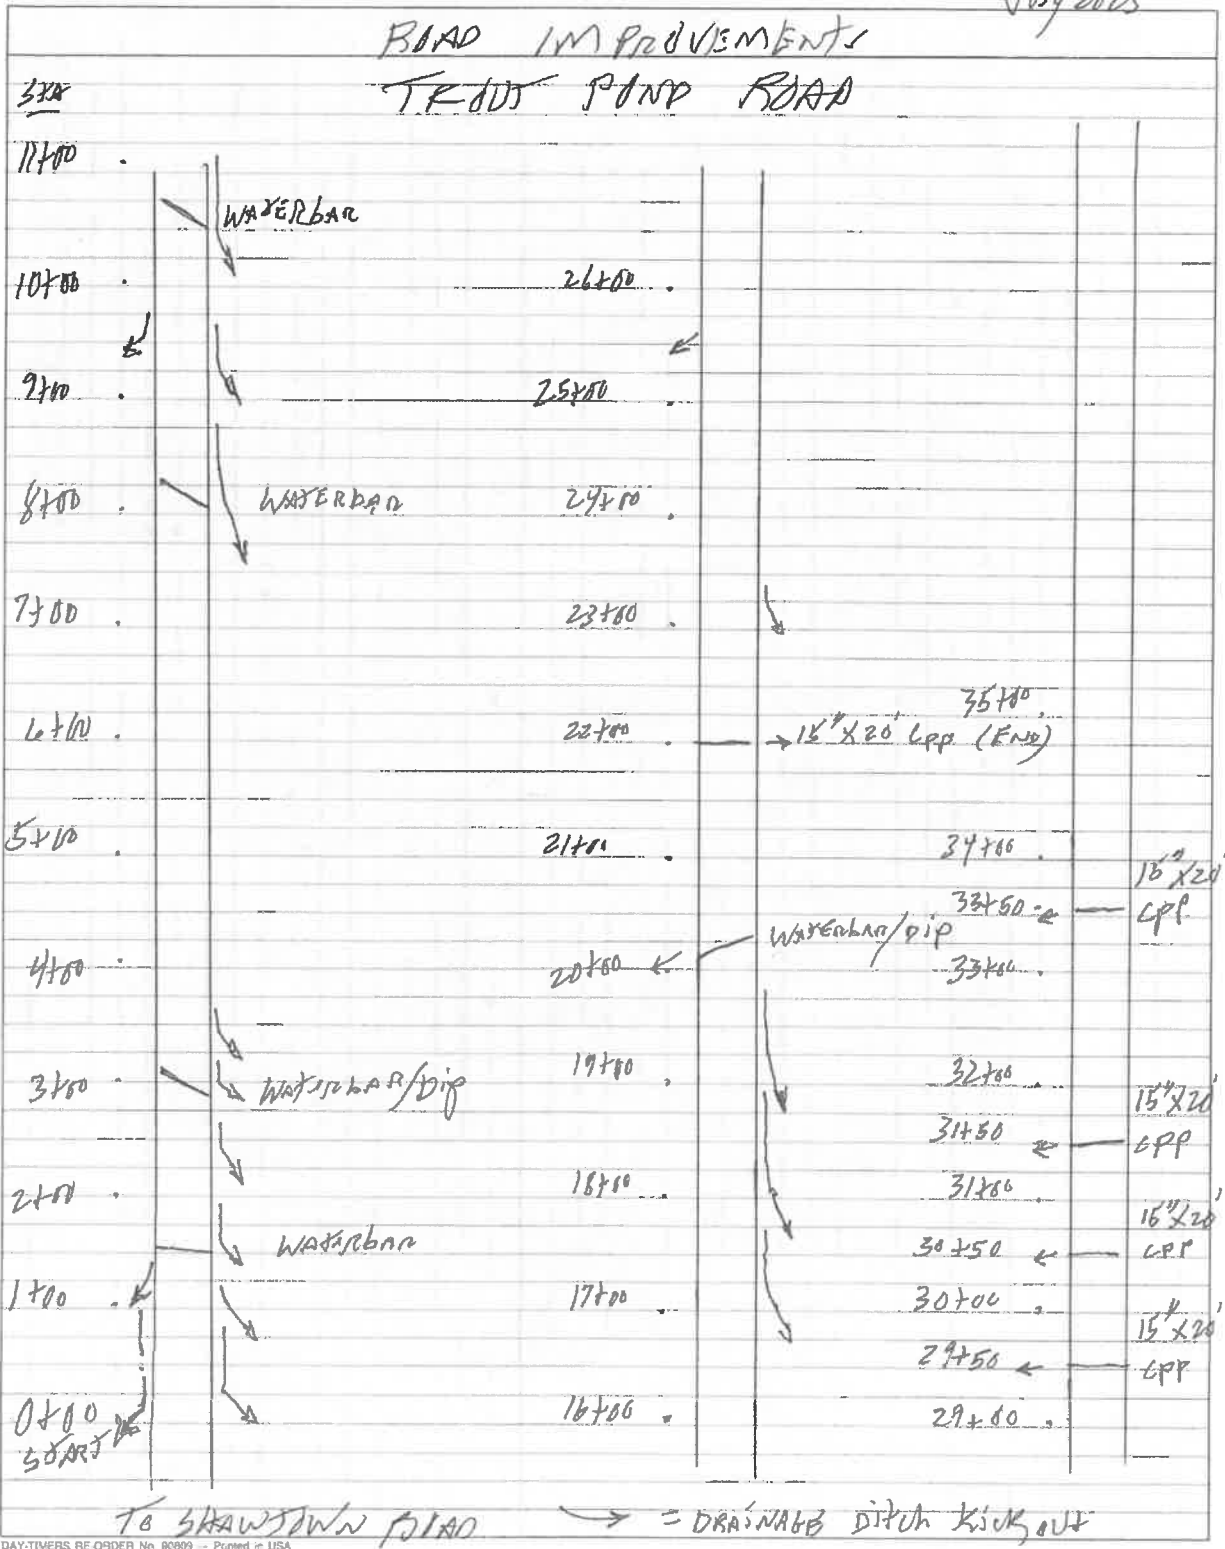 July 2003
ROAD IMPROVEMENTS
STA
TROUT POND ROAD
11+00
WATERBAR
10+00
9+00
8+00
WATERBAR
7+00
6+00
5+00
4+00
3+00
WATERBAR/Dip
2+00
WATERBAR
1+00
0+00
START
26+00
25+00
24+00
23+00
22+00
15"X20' CPP (END)
21+00
20+00
WATERBAR/DIP
19+00
18+00
17+00
16+00
35+00
34+00
15"X20'
33+50
CPP
33+00
32+00
15"X20'
31+50
CPP
31+00
15"X20'
30+50
CPP
30+00
15"X20'
29+50
CPP
29+00
TO SHAWTOWN ROAD
= DRAINAGE DITCH KICK OUT
DAY-TIMERS RE-ORDER No. 90809 — Printed in USA